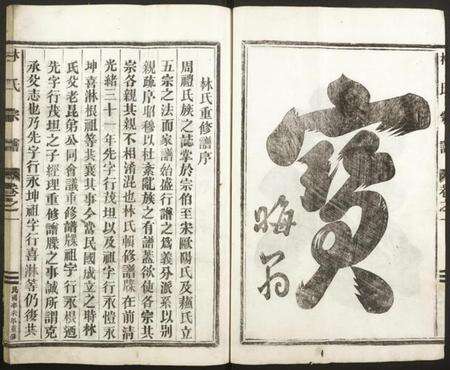 寶
晦翁
林氏重修譜序
周禮氏族之誌掌於宗伯至宋歐陽氏及蘇氏立
五宗之法而家譜始盛行譜之爲義分派系以別
親疎序昭穆以杜紊亂族之有譜蓋欲使各宗其
宗各親其親不相淆混也林氏賴修譜牒在前清
光緒三十一年先字行茂坦以及祖字行永愷永
坤喜淋根祖等共襄其事今當民國成立之時林
氏父老昆弟公同會議重修譜牒祖字行永根迺
先字行茂坦之子經理重修譜牒之事誠所謂克
承父志也乃先字行永坤祖字行喜淋等仍復共
林氏宗譜
卷之一